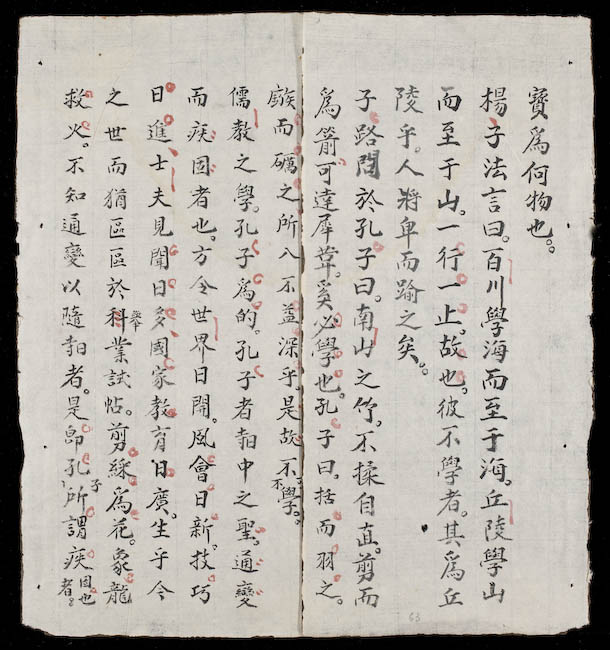 寶爲何物也。
楊子法言曰。百川學海而至于海。丘陵學山
而至于山。一行一止。故也。彼不學者。其爲丘
陵乎。人將卑而踰之矣。
子路問於孔子曰。南山之竹。不揉自直。剪而
爲箭可達犀革。奚必學也。孔子曰。括而羽之。
鏃而礪之所入不益深乎。是故不不學。
儒教之學。孔子爲的。孔子者時中之聖。通變
而疾固者也。方今世界日開。風會日新。技巧
日進士夫見聞日多國家教育日廣。生乎今
之世而猶區區於科舉業試帖。剪綵爲花。象龍
救火。不知通變以隨時者。是卽孔子所謂疾固也者。
63